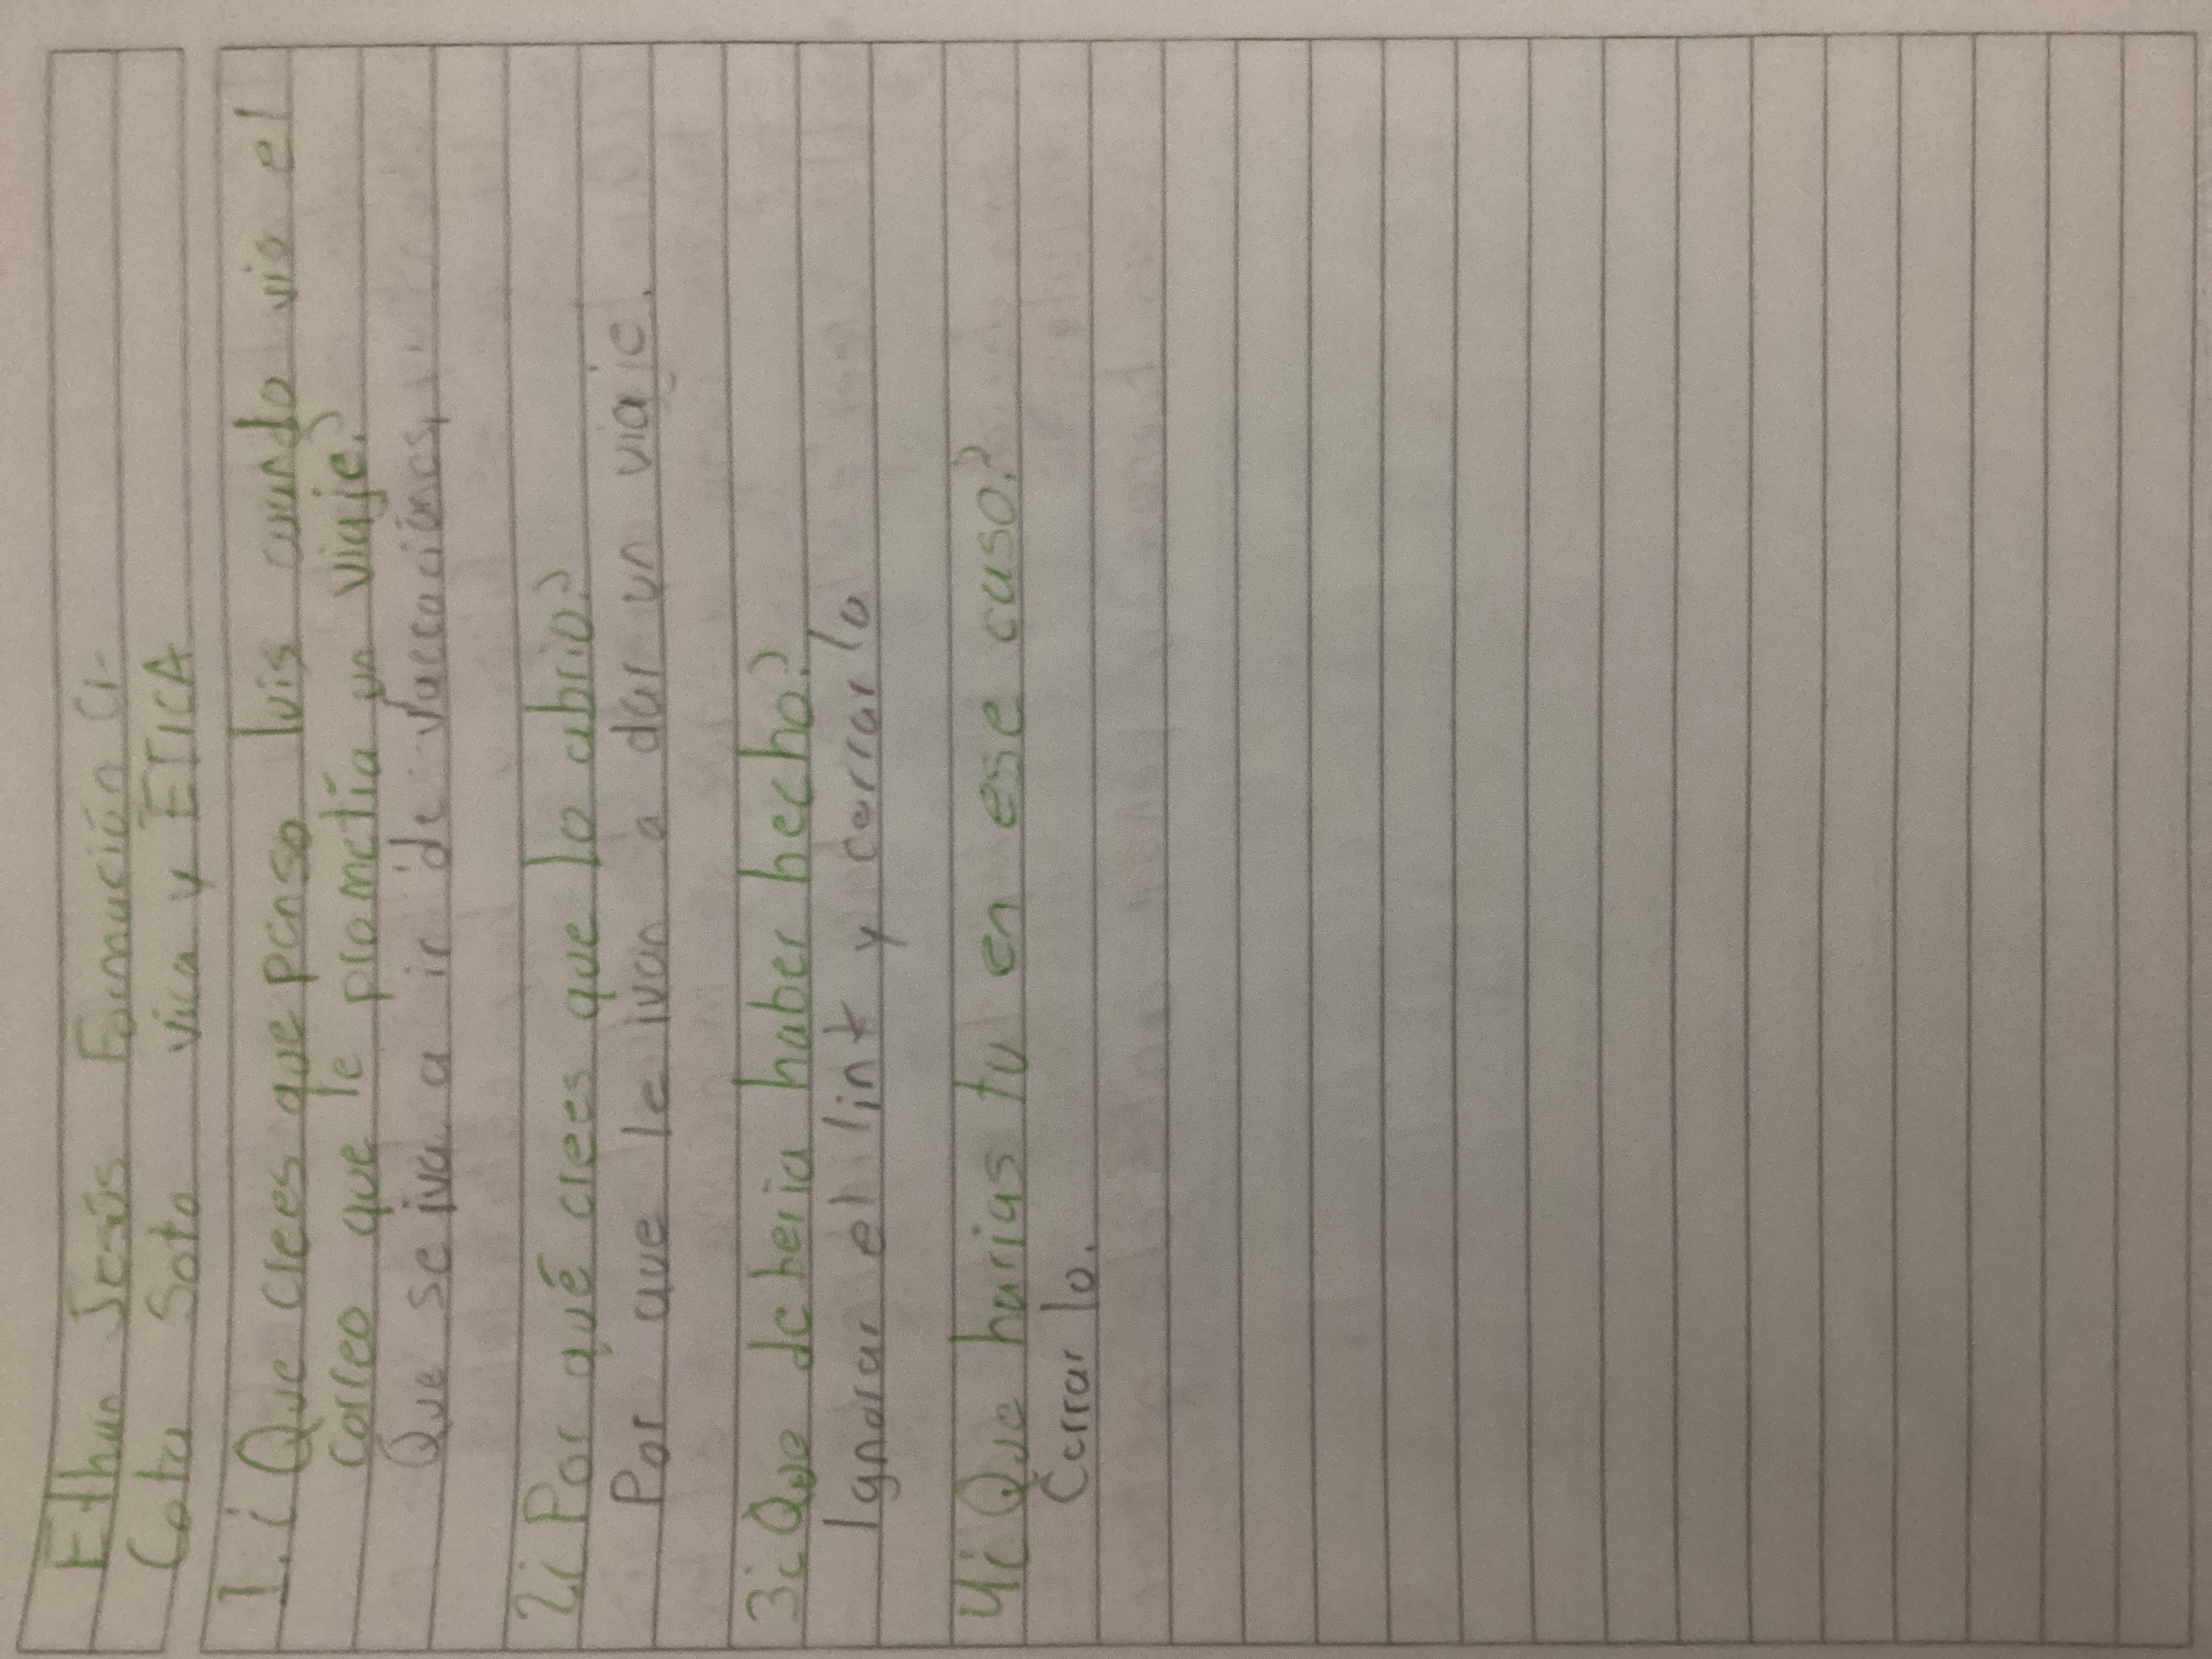 Ethan Jesús Formación Ci-
Cota Soto vica y ETICA
1.¿Que crees que penso luis cuando vio el
correo que le prometía un viaje?
Que se iva a ir de vaccaciónes,
2¿Por qué crees que lo abrio?
Por que le ivan a dar un viaje.
3¿Que deberia haber hecho?
Ignorar el link y cerrarlo
4¿Que harias tu en ese caso?
Cerrar lo.